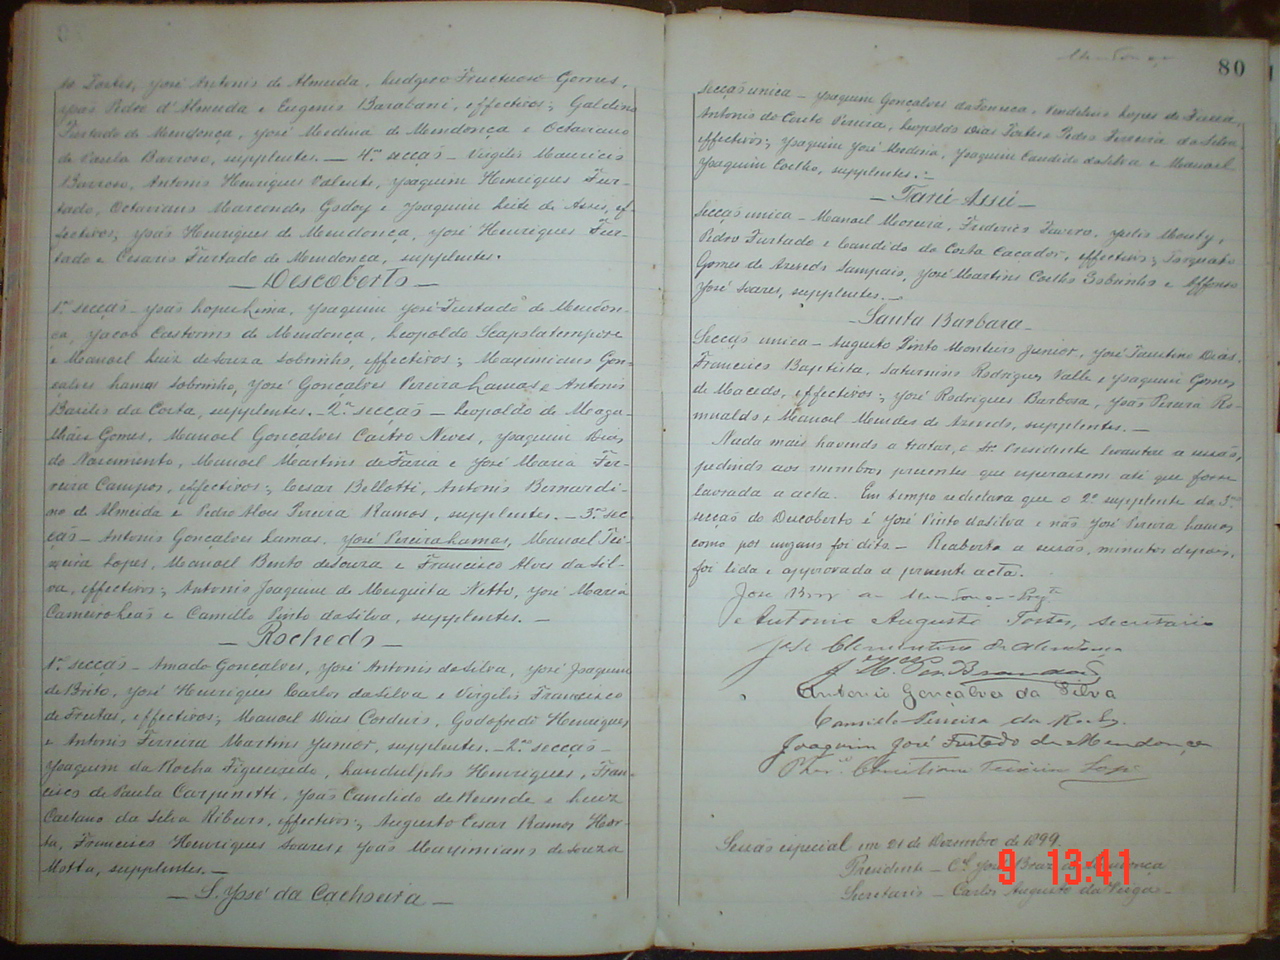 to Fortes, José Antonio de Almeida, Ludgero Fructuoso Gomes,
João Pedro d'Almeida e Eugenio Barabani, effectivos; Galdino
Furtado de Mendonça, José Medina de Mendonça e Octaviano
de Paula Barroso, supplentes. — 4ª secção — Virgilio Mauricio
Barroso, Antonio Henriques Valente, Joaquim Henriques Fur-
tado, Octaviano Marcondes Godoy e Joaquim Leite de Assis, ef-
fectivos; João Henriques de Mendonça, José Henriques Fur-
tado e Cesario Furtado de Mendonça, supplentes.
— Descoberto —
1ª secção — João Lopes Lima, Joaquim José Furtado de Mendon-
ça, Jacob Castorino de Mendonça, Leopoldo Scapolatempore
e Manoel Luiz de Souza Sobrinho, effectivos; Maximiano Gon-
çalves Lamas Sobrinho, José Gonçalves Pereira Lamas e Antonio
Basilio da Costa, supplentes. — 2ª secção — Leopoldo de Maga-
lhães Gomes, Manoel Gonçalves Castro Neves, Joaquim Dias
do Nascimento, Manoel Martins de Faria e José Maria Fer-
reira Campos, effectivos; Cesar Bellotti, Antonio Bernardi-
no de Almeida e Pedro Alves Pereira Ramos, supplentes. — 3ª sec-
ção — Antonio Gonçalves Lamas, José Pereira Lamas, Manoel Tei-
xeira Lopes, Manoel Bento de Souza e Francisco Alves da Sil-
va, effectivos; Antonio Joaquim de Mesquita Netto, José Maria
Carneiro Leão e Camillo Pinto da Silva, supplentes. —
— Rochedo —
1ª secção — Amado Gonçalves, José Antonio da Silva, José Joaquim
de Brito, José Henriques Carlos da Silva e Virgilio Francisco
de Freitas, effectivos; Manoel Dias Cordeiro, Godofredo Henriques
e Antonio Ferreira Martins Junior, supplentes. — 2ª secção —
Joaquim da Rocha Figueiredo, Landulpho Henriques, Fran-
cisco de Paula Carpenetti, João Candido de Rezende e Luiz
Caetano da Silva Ribeiro, effectivos; Augusto Cesar Ramos Hor-
ta, Francisco Henriques Soares e João Maximiano de Souza
Motta, supplentes. —
— S. José da Cachoeira —
80
Secção unica — Joaquim Gonçalves da Fonseca, Vindelino Lopes de Faria,
Antonio do Couto Pereira, Leopoldo Dias Fortes e Pedro Ferreira da Silva,
effectivos; Joaquim José Medina, Joaquim Candido da Silva e Manoel
Joaquim Coelho, supplentes. —
— Tarú-Assú —
Secção unica — Manoel Moreira, Frederico Tavero, Julio Mouty,
Pedro Furtado e Candido da Costa Caçador, effectivos; Torquato
Gomes de Azevedo Sampaio, José Martins Coelho Sobrinho e Affonso
José Soares, supplentes. —
— Santa Barbara —
Secção unica — Augusto Pinto Monteiro Junior, José Faustino Dias,
Francisco Baptista, Saturnino Rodrigues Valle e Joaquim Gomes
de Macedo, effectivos; José Rodrigues Barbosa, João Pereira Ro-
mualdo e Manoel Mendes de Azevedo, supplentes. —
Nada mais havendo a tratar, o Sr. Presidente levantou a sessão,
pedindo aos membros presentes que esperassem até que fosse
lavrada a acta. Em tempo se declara que o 2º supplente da 3ª
secção do Descoberto é José Pinto da Silva e não José Pereira Lamas,
como por engano foi dito — Reaberta a sessão, minutos depois,
foi lida e approvada a presente acta.
José Braz de Mendonça
Antonio Augusto Fortes, secretario
José Clementino de Mendonça
Antonio Gonçalves da Silva
Camillo Pereira da Rocha
Joaquim José Furtado de Mendonça
Christiano Teixeira Lopes
Sessão especial em 21 de Dezembro de 1899
Presidente — Cel. José Braz de Mendonça
Secretario — Carlos Augusto da Veiga —
9 13:41